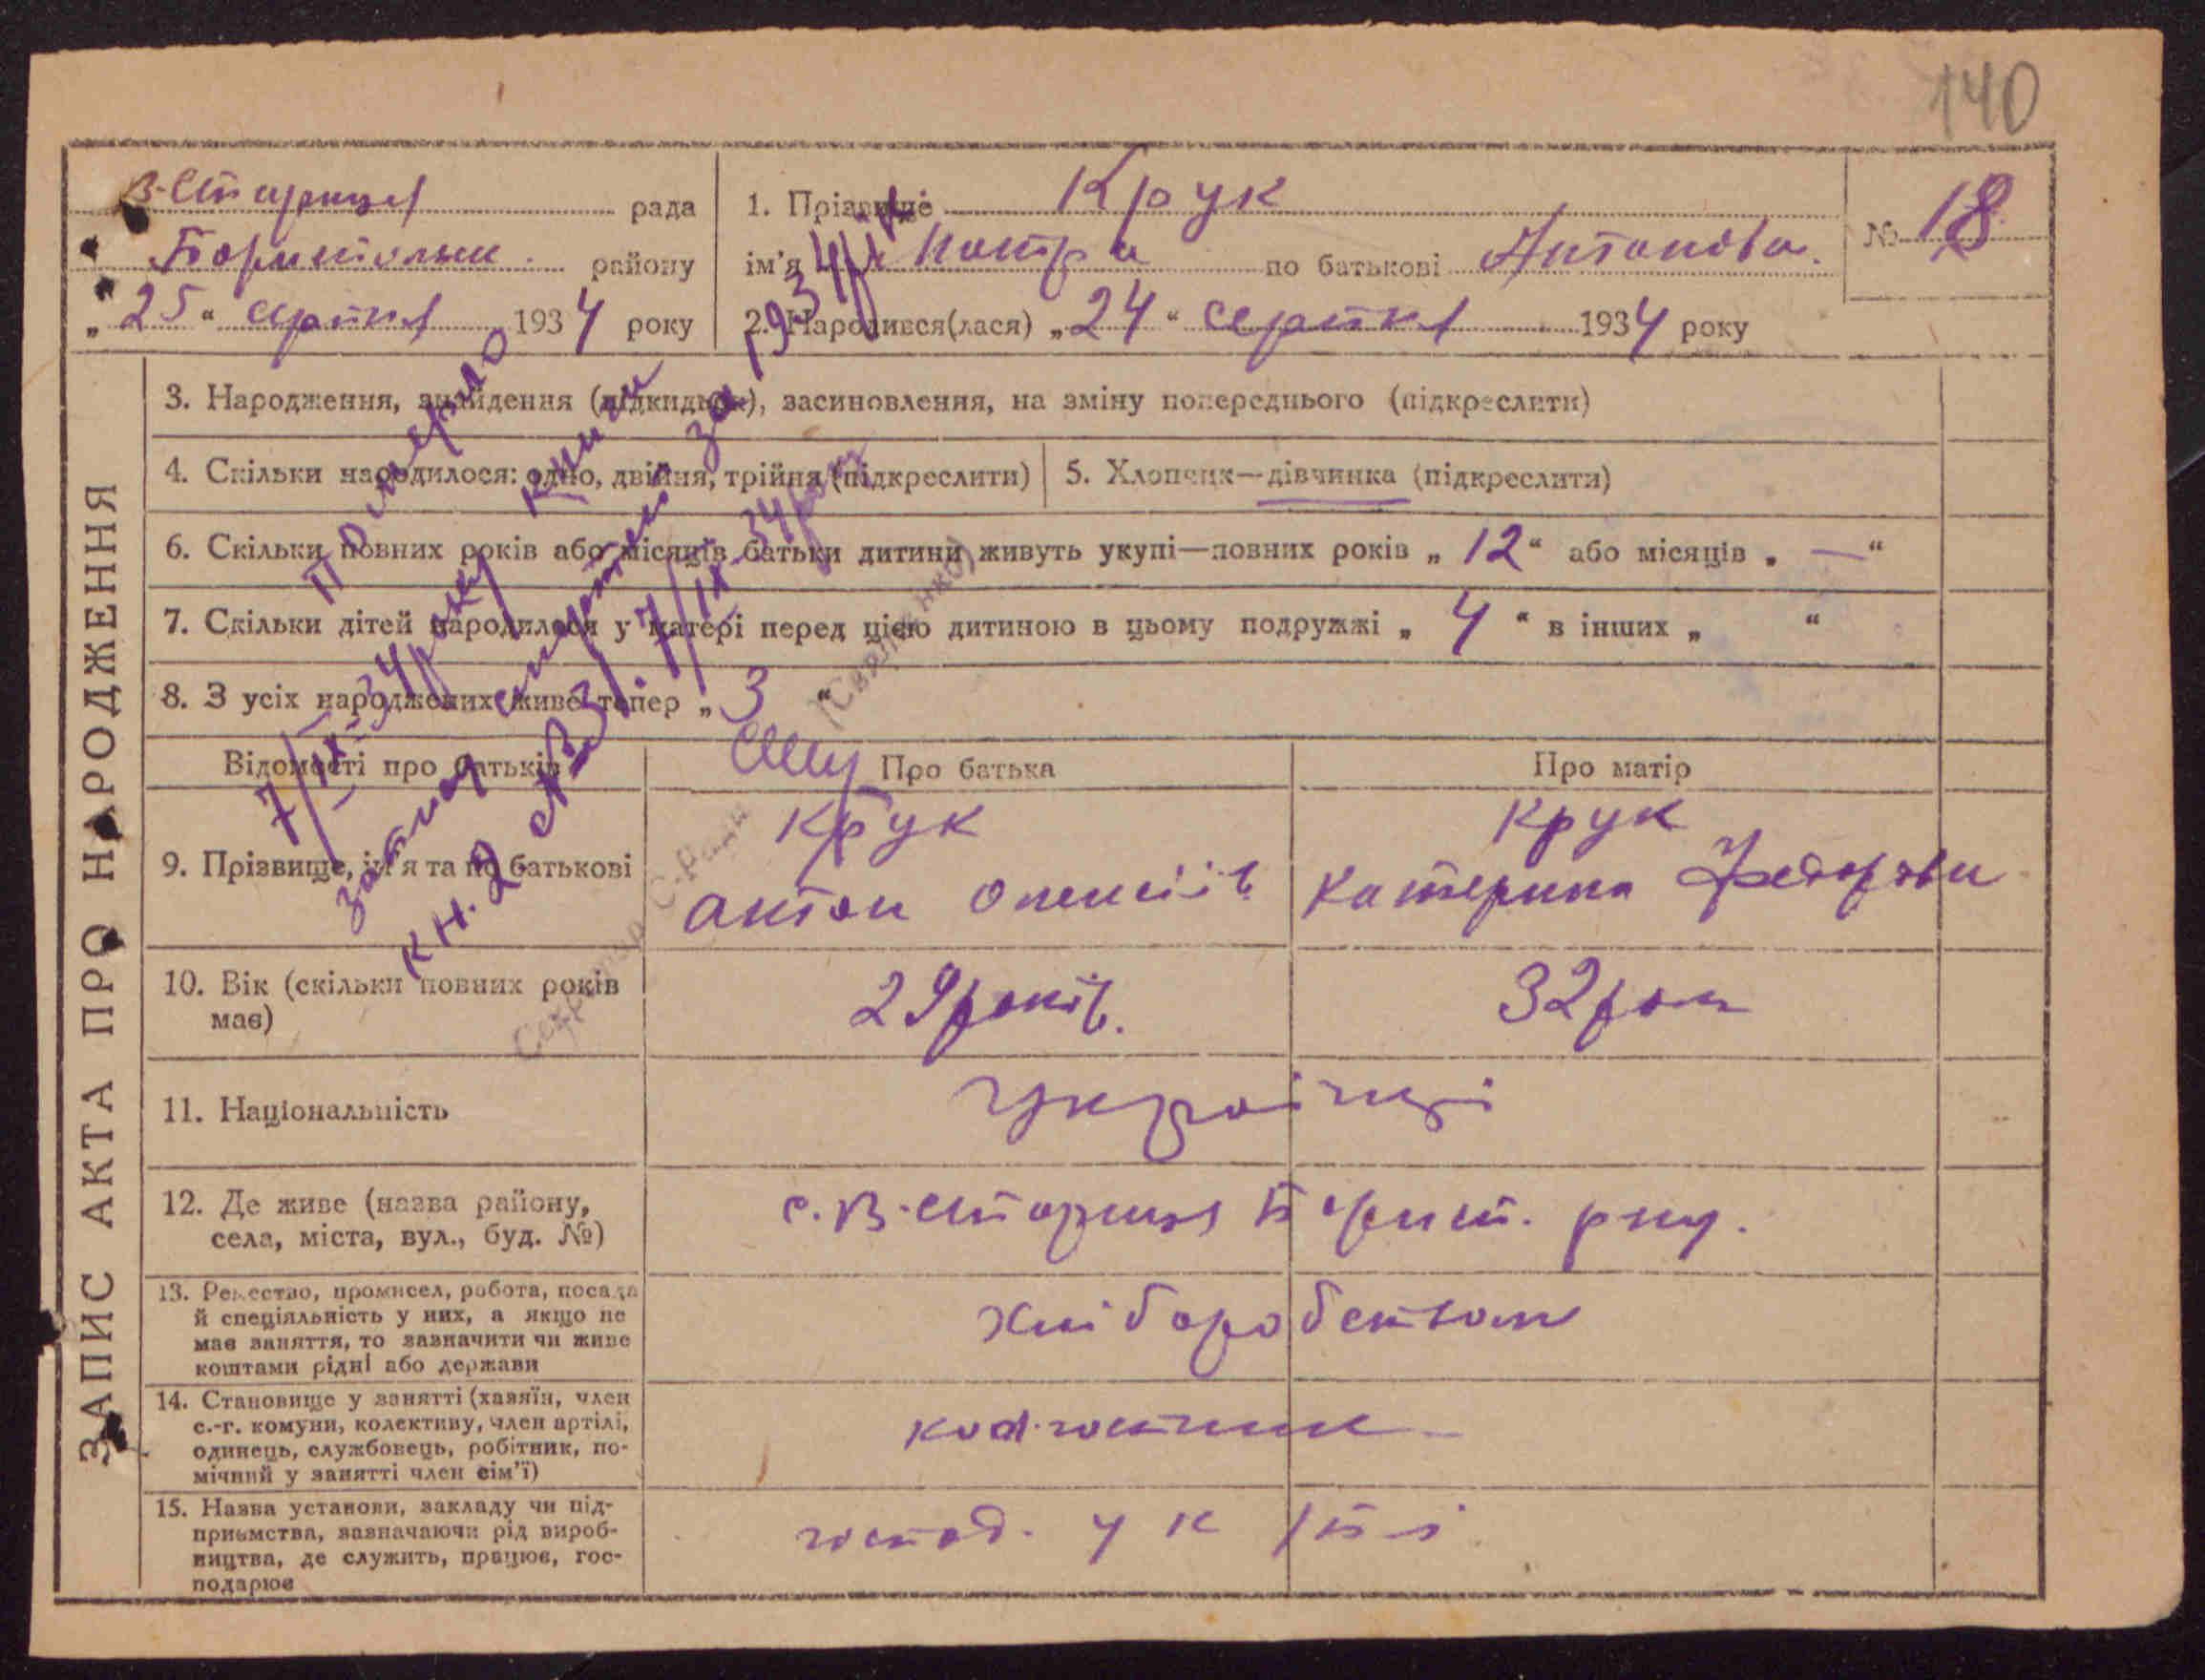 140
В-Стариця рада
Бориспольськ. району
„25“ серпня 1934 року
1. Прізвище Крук
ім'я по батькові Антонова.
№ 18
2. Народився(лася) „24“ серпня 1934 року
ЗАПИС АКТА ПРО НАРОДЖЕННЯ
3. Народження, знайдення (підкидьок), засиновлення, на зміну попереднього (підкреслити)
4. Скільки народилося: одно, двійня, трійня (підкреслити)
5. Хлопчик—дівчинка (підкреслити)
6. Скільки повних років або місяців батьки дитини живуть укупі—повних років „12“ або місяців „—“
7. Скільки дітей народилося у матері перед цією дитиною в цьому подружжі „4“ в інших „ “
8. З усіх народжених живе тепер „3“
Відомості про батьків
Про батька
Про матір
9. Прізвище, ім'я та по батькові
Крук
Антон Олексіїв.
Крук
Катерина Федорови
10. Вік (скільки повних років
має)
29 років.
32 роки
11. Національність
Українці
12. Де живе (назва району,
села, міста, вул., буд. №)
с. В-Стариця Борисп. рну.
13. Ремество, промисел, робота, посада
й спеціяльність у них, а якщо не
має заняття, то зазначити чи живе
коштами рідні або держави
Хліборобством
14. Становище у занятті (хазяїн, член
с.-г. комуни, колективу, член артілі,
одинець, службовець, робітник, по-
мічний у занятті член сім'ї)
15. Назва установи, закладу чи під-
приємства, зазначаючи рід вироб-
ництва, де служить, працює, гос-
подарює
господ. у к
Померло
7/IX-34 року книги
запис смертей за 1934 р.
кн. 2 № 31. 7/IX-34 року